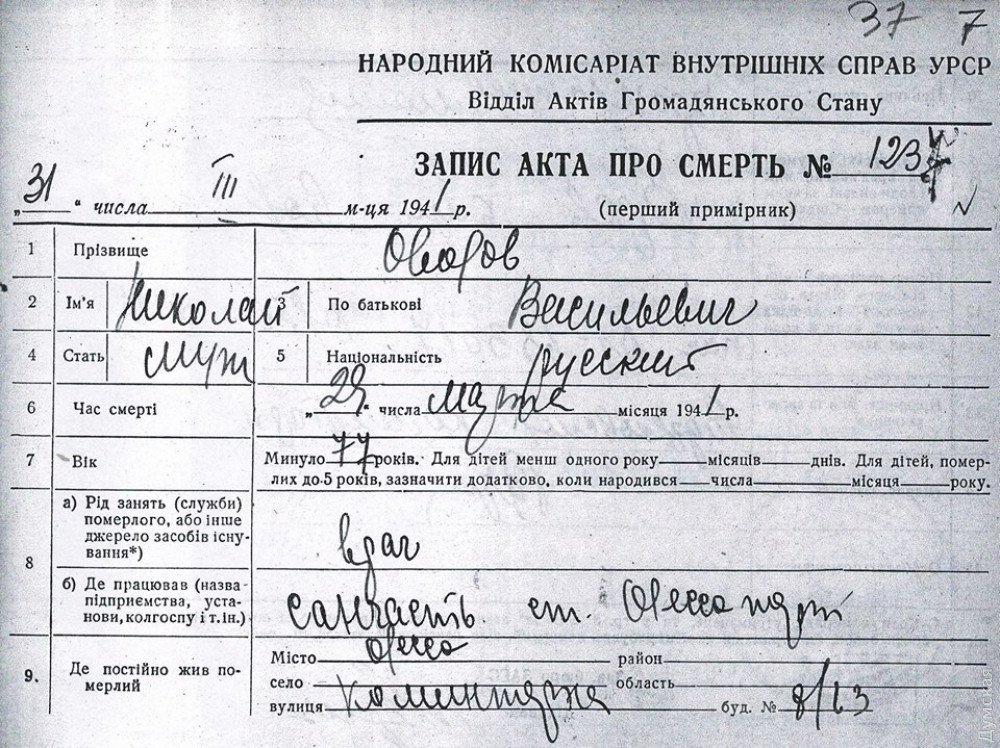 37 7
НАРОДНИЙ КОМІСАРІАТ ВНУТРІШНІХ СПРАВ УРСР
Відділ Актів Громадянського Стану
ЗАПИС АКТА ПРО СМЕРТЬ № 1237
„31“ числа III м-ця 1941 р. (перший примірник)
1 Прізвище
2 Ім'я Николай 3 По батькові Васильевич
4 Стать муж 5 Національність русский
6 Час смерті „29“ числа марта місяця 1941 р.
7 Вік Минуло 77 років. Для дітей менш одного року місяців днів. Для дітей, помер-
лих до 5 років, зазначити додатково, коли народився числа місяця року.
8 а) Рід занять (служби)
померлого, або інше
джерело засобів існу-
вання*) врач
б) Де працював (назва
підприємства, уста-
нови, колгоспу і т. ін.) Санчасть ст. Одесса порт
9. Де постійно жив по-
мерлий
Місто Одесса район
село область
вулиця Коминтерна буд. № 8/13